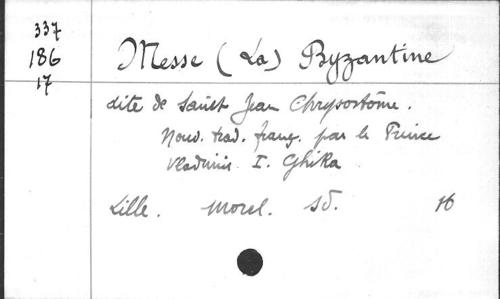 337
186
17
Messe (La) Byzantine
dite de Saint Jean Chrysostôme.
Nouv. trad. franç. par le Prince
Vladimir I. Ghika
Lille. Morel. SD. 16